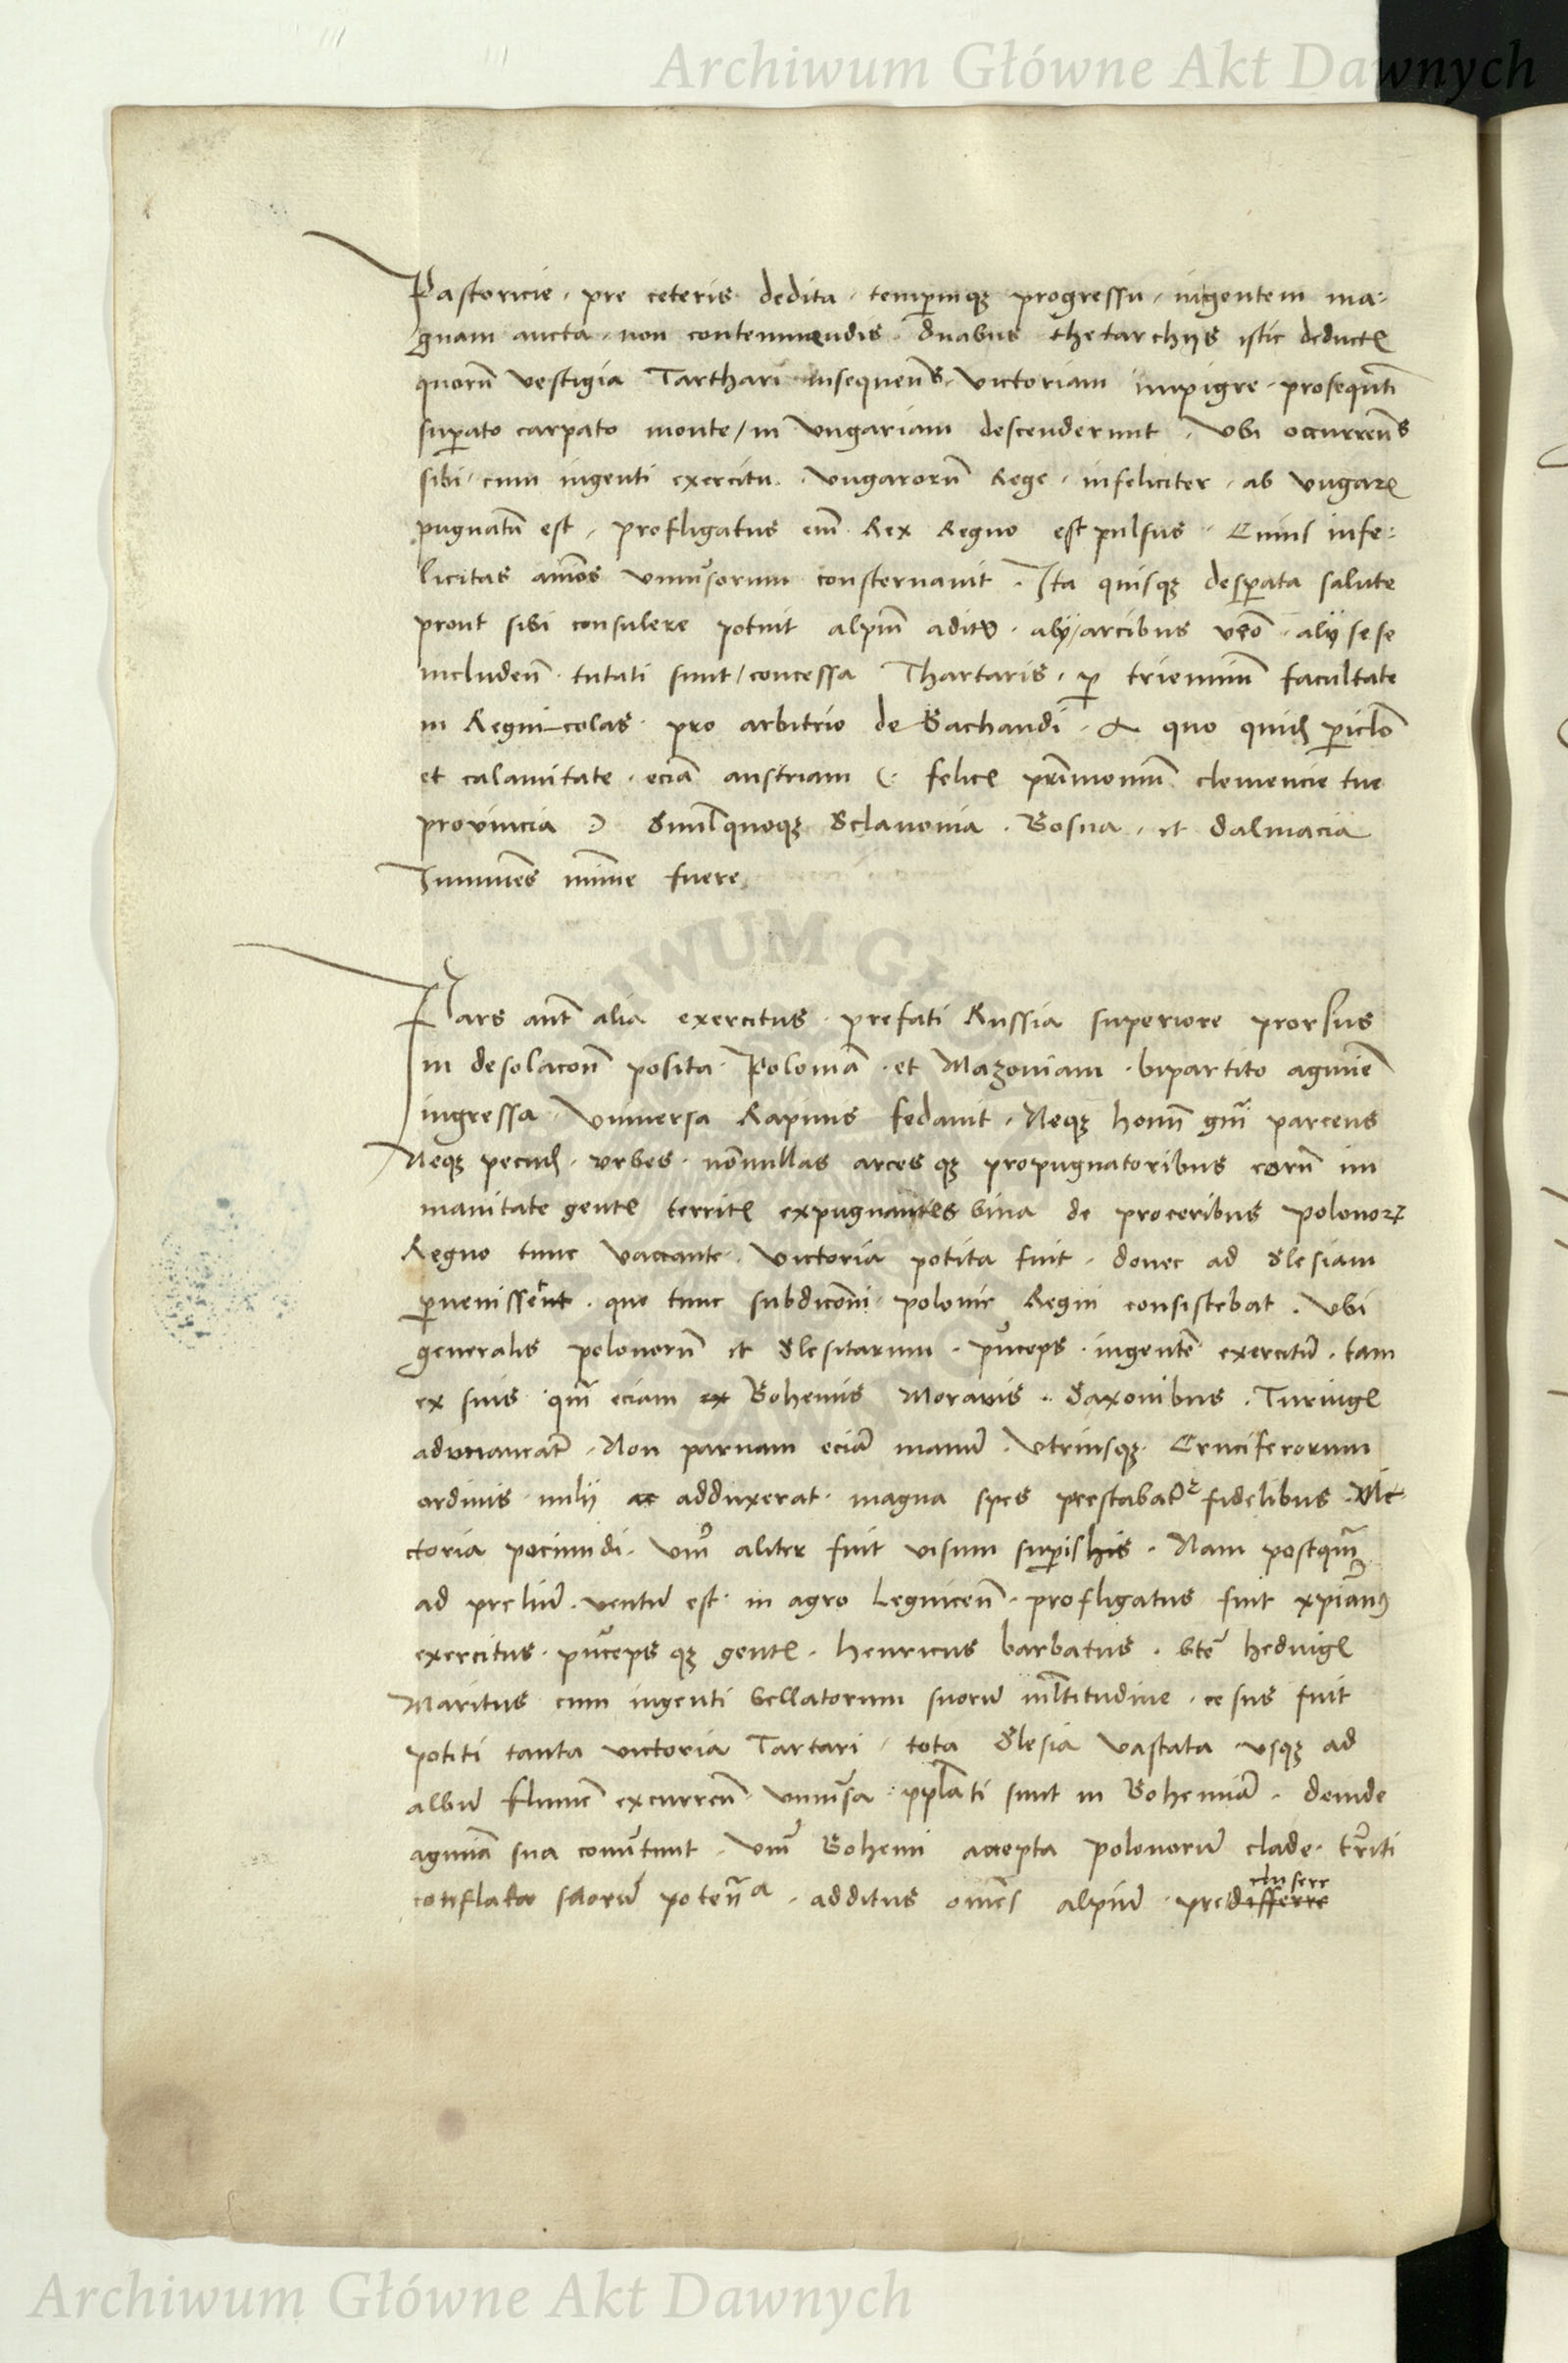 Archiwum Główne Akt Dawnych
Pastoricie · pre ceteris dedita · temperinqꝫ progressu · ingentem ma:
gnam aucta · non contemnandis · duabus thetarchijs istic deductꝭ
quorū vestigia Tarthari insequens · victoriam impigre · prosequti
supato carpato monte / in Vngariam descenderunt · Vbi occurrens
sibi / cum ingenti exercitu · Vngarorū Rege · infeliciter · ab Vngarꝭ
pugnatū est · profligatus em̄ Rex Regno est pulsus · Cuius infe:
licitas aīos vniūsorum consternauit · Ita quisqꝫ despata salute
prout sibi consulere potuit alpiū adit9 · alÿ / arcibus vēo · alÿ sese
includen̄ · tutati sunt / concessa Thartaris · p trienniū facultate
in Regnicolas · pro arbitrio debachandi · A quo quidē piclo
et calamitate · eciā austriam (: felicꝭ prīmoniū clemencie tue
prouincia ) Simlquoqꝫ Sclauonia · Bosna · et dalmacia
Immūes mīme fuere
Pars aut̄ alia exercitus · prefati Russia superiore prorsus
in desolacoñ posita · Poloniā · et Mazouiam · bipartito agmine
ingressa · Vniuersa Rapinis fedauit · Neqꝫ homī gn̄i parcens
Neqꝫ pecudꝭ · vrbes · nōnullas arces qꝫ propugnatoribus eorū im
manitate gentꝭ territꝭ expugnantes bina de proceribus polonorꝝ
Regno tunc vaccante · victoria potita fuit · donec ad Slesiam
puenissent · que tunc subdicōni polonie Regni consistebat · Vbi
generalis polonorū et Slesitarum · p̄nceps · ingentē exercitū · tam
ex suis qm̄ eciam ex Bohemis Morauis · Saxonibus · Turingꝭ
adunauerat · Non paruam eciā manū · Vtriusqꝫ · Cruciferorum
ordinis · milÿ ac adduxerat · magna spes prestabat fidelibus · Vi
ctoria pociundi · Vm̄ aliter fuit visum supis his · Nam postqm̄
ad preliū · ventū est · in agro Legnicen̄ · profligatus fuit xpian9
exercitus · p̄nceps qꝫ gentꝭ · henricus barbatus · bte hedwigꝭ
Maritus cum ingenti bellatorum suorū ml̄titudine · cesus fuit
potiti tanta victoria Tartari · tota Slesia vastata · vsqꝫ ad
albū flumē excurren̄ · vniūsa · pplati sunt in Bohemiā · deinde
agmīa sua conūtunt · Vm̄ Bohemi accepta polonorū clade · t̄riti
conflata suorū potenc̄a · additus omēs alpiū · pre
clusere
differre
Archiwum Główne Akt Dawnych